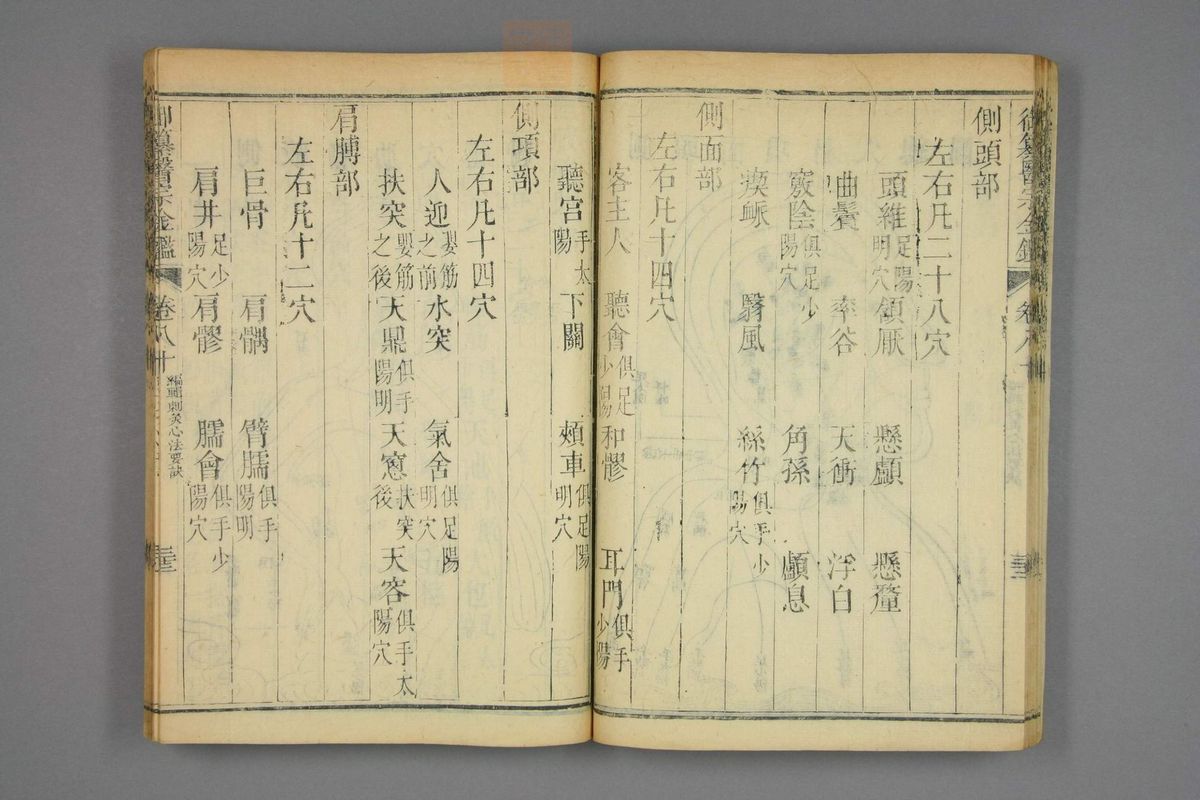 御纂醫宗金鑑 卷八十
側頭部
左右凡二十八穴
頭維足陽明穴 頷厭 懸顱 懸釐
曲鬢 率谷 天衝 浮白
竅陰俱足少陽穴 角孫 顱息
瘈脈 翳風 絲竹俱手少陽穴
側面部
左右凡十四穴
客主人 聽會俱足少陽 和髎 耳門俱手少陽
聽宮手太陽 下關 頰車俱足陽明穴
側項部
左右凡十四穴
人迎嬰筋之前 水突 氣舍俱足陽明穴
扶突嬰筋之後 天鼎俱手陽明 天窻扶突後 天容俱手太陽穴
肩膊部
左右凡十二穴
巨骨 肩髃 臂臑俱手陽明
肩井足少陽穴 肩髎 臑會俱手少陽穴
御纂醫宗金鑑 卷八十 編輯刺灸心法要訣 三